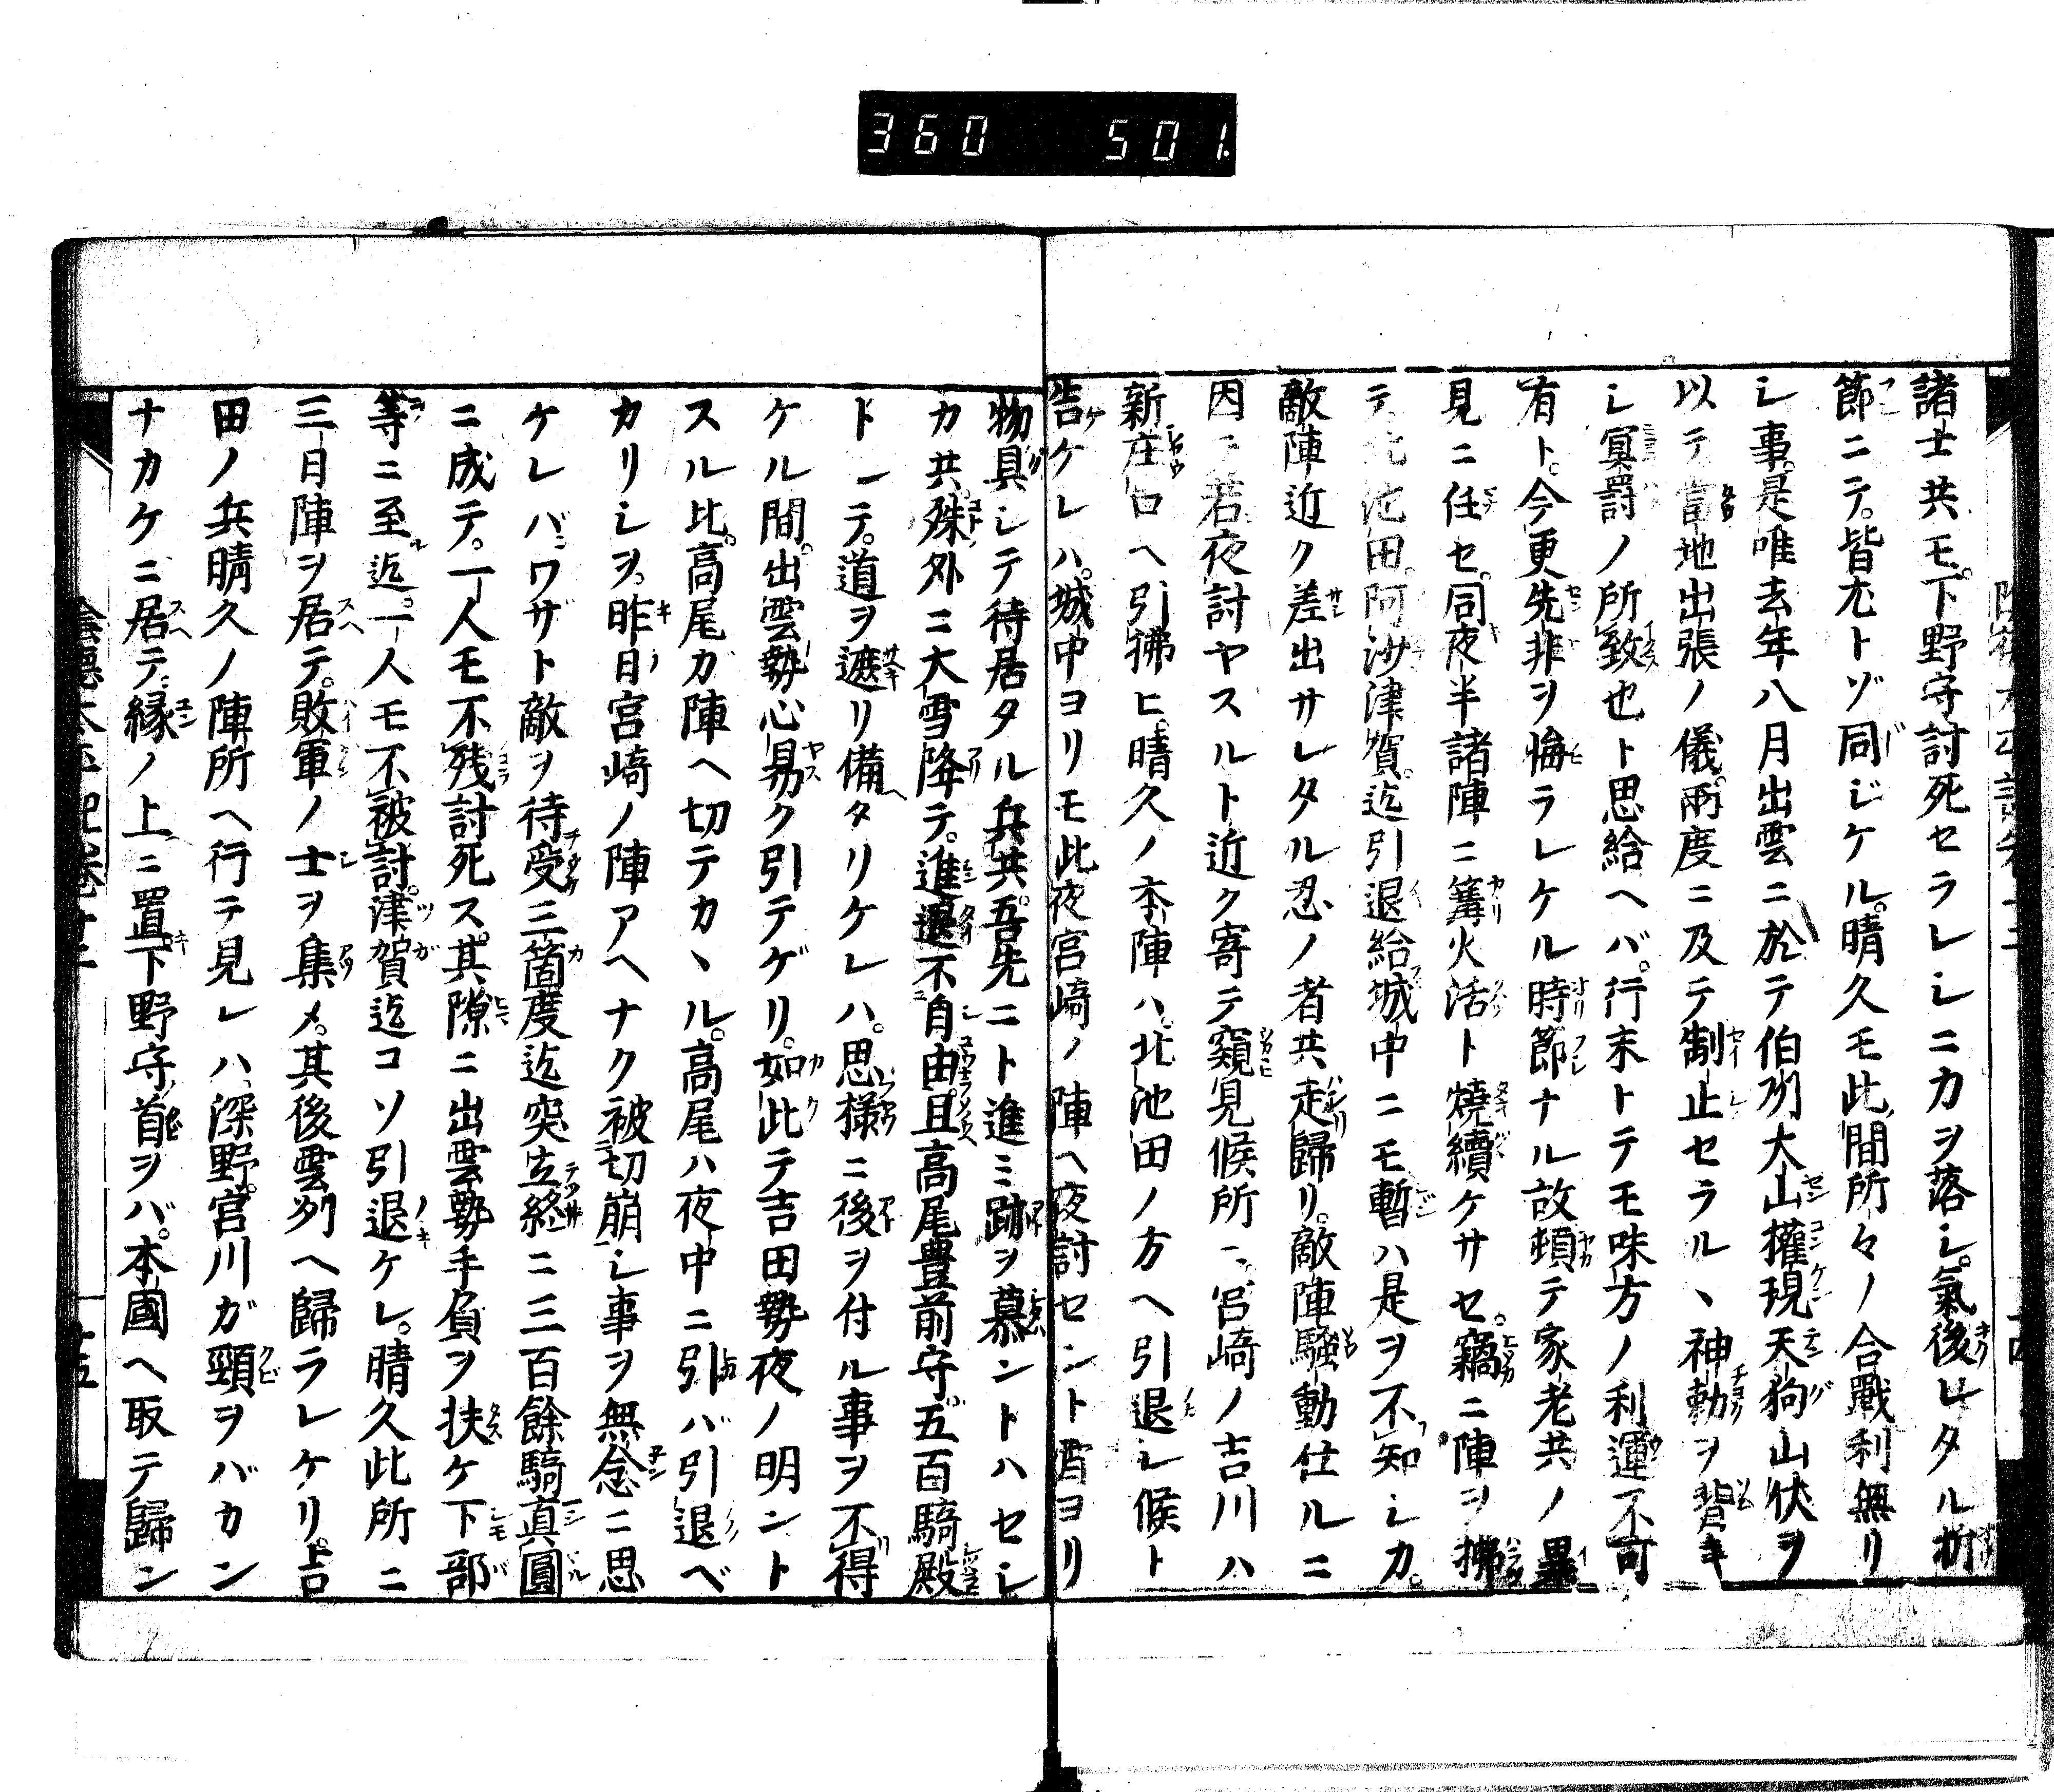 360 501.
諸士共モ。下野守討死セラレシニカヲ落シ。氣後レタル折
節ニテ。皆尤トゾ同ジケル。晴久モ此間所々ノ合戰利無リ
シ事。是唯去年八月出雲ニ於テ伯州大山權現天狗山伏ヲ
以テ當地出張ノ儀。兩度ニ及テ制止セラルヽ神勅ヲ背キ
シ冥罸ノ所致也ト思給ヘバ。行末トテモ味方ノ利運不可
有ト。今更先非ヲ悔ラレケル時節ナル故頓テ家老共ノ異
見ニ任セ。同夜半諸陣ニ篝火活ト燒續ケサセ。竊ニ陣ヲ拂
テ北池田。阿沙津賀。迄引退給城中ニモ暫ハ是ヲ不知シカ。
敵陣近ク差出サレタル忍ノ者共走歸リ。敵陣騷動仕ルニ
因テ若夜討ヤスルト近ク寄テ窺見候所ニ、宮崎ノ吉川ハ
新庄口ヘ引拂ヒ。晴久ノ本陣ハ。北池田ノ方ヘ引退レ候ト
告ケレハ。城中ヨリモ此夜宮崎ノ陣ヘ夜討セント酉ヨリ
物具シテ待居タル兵共。吾先ニト進ミ跡ヲ慕ントハセシ
カ共。殊外ニ大雪降テ。進退不自由。且高尾豊前守。五百騎殿
トシテ。道ヲ遮リ備タリケレハ。思樣ニ後ヲ付ル事ヲ不得
ケル間。出雲勢心易ク引テゲリ。如此テ吉田勢夜ノ明ント
スル比。高尾ガ陣ヘ切テカヽル。高尾ハ夜中ニ引バ引退ベ
カリシヲ。昨日宮崎ノ陣アヘナク被切崩シ事ヲ無念ニ思
ケレバ。ワザト敵ヲ待受三箇度迄突立終ニ三百餘騎眞圓
ニ成テ。一人モ不残討死ス。其隙ニ出雲勢手負ヲ扶ケ下部
等ニ至迄。一人モ不被討。津賀迄コソ引退ケレ。晴久此所ニ
三日陣ヲ居テ。敗軍ノ士ヲ集メ。其後雲列ヘ歸ラレケリ。吉
田ノ兵晴久ノ陣所ヘ行テ見レハ、深野。宮川ガ頸ヲバカン
ナカケニ居テ。縁ノ上ニ置。下野守首ヲバ。本國ヘ取テ歸ン
陰德太平記卷十二